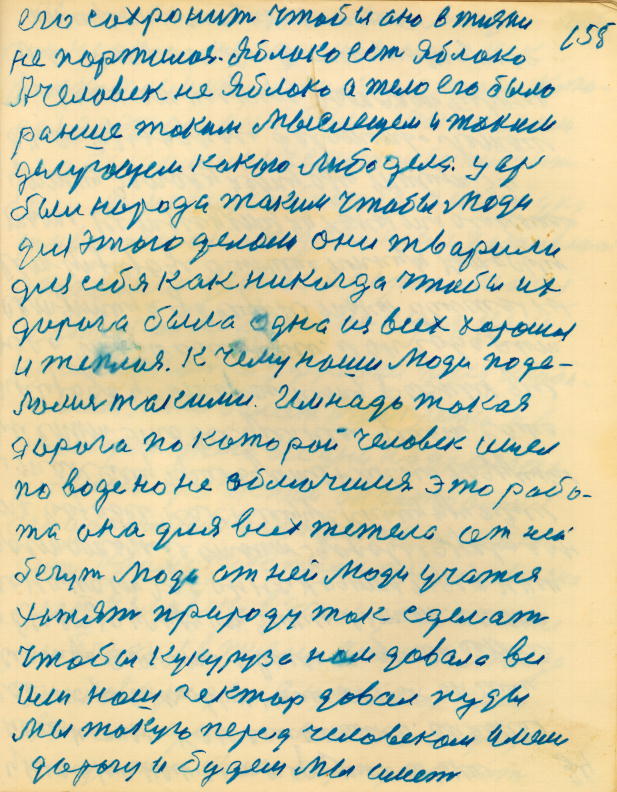 его сохронит чтобы оно в тяни 158
не портился. Яблоко ест Яблоко
А человек не Яблоко а тело его было
ранше таким мыслещем и таким
делующем какого либо дела. у
были народи такими чтобы люди
для этого делали они тварили
для себя как никогда чтобы их
дорога была одна из всех хороша
и теплая. К чему наши люди поде-
лолис такими. Им надо такая
дорога по которой человек шел
по воде но не обмочился это рабо-
та она для всех тежела от ней
бегут люди от ней люди учатся
хотят природу так сделат
чтобы кукуруза нам довала вы
или наш гектар довал пуды
мы такую перед человеком имели
дорогу и будем мы имет